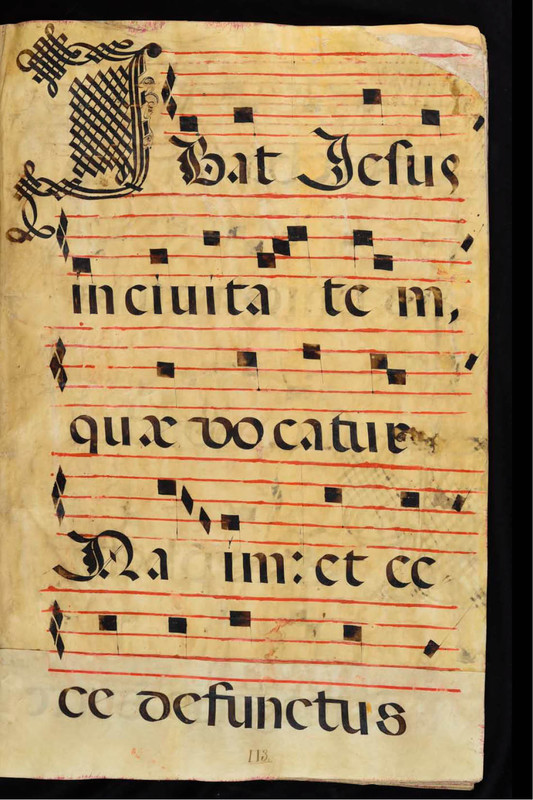 IBat Jesus
in ciuita te m,
quæ vo catur
Na im: et ec
ce defunctus
113.